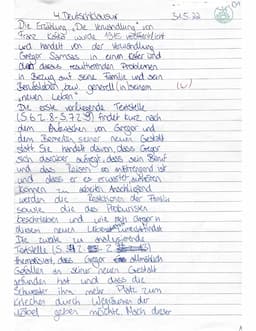 4. Deutschklausur 31.5.22
Die Erzählung „Die Verwandlung" von
Franz Kafka wurde 1915 veröffentlicht
und handelt von der Verwandlung
Gregor Samsas in einen Käfer und
daraus resultierenden Problemen
in Bezug auf seine Familie und sein
Berufsleben bzw. generell (in) seinem
„neuen Leben".
Die erste vorliegende Textstelle
findet kurz nach
dem Aufwachen von Gregor und
dem Bemerken seiner neuen Gestalt
statt. Sie handelt davon, dass Gregor
sich darüber aufregt, dass sein Beruf
und das Reisen so anstrengend ist
und dass er es
können zu arbeiten. Anschließend
werden die Reaktionen der Familie
sowie die des Prokuristen
beschrieben und wie sich Gregor in
diesem neuen
Die zweite zu analysierende
Textstelle
thematisiert, dass Gregor allmählich
Gefallen an seiner neuen Gestalt
gefunden hat und dass die
Schwester ihm mehr Platz zum
Kriechen durch Wegräumen der
Möbel geben möchte. Nach dieser